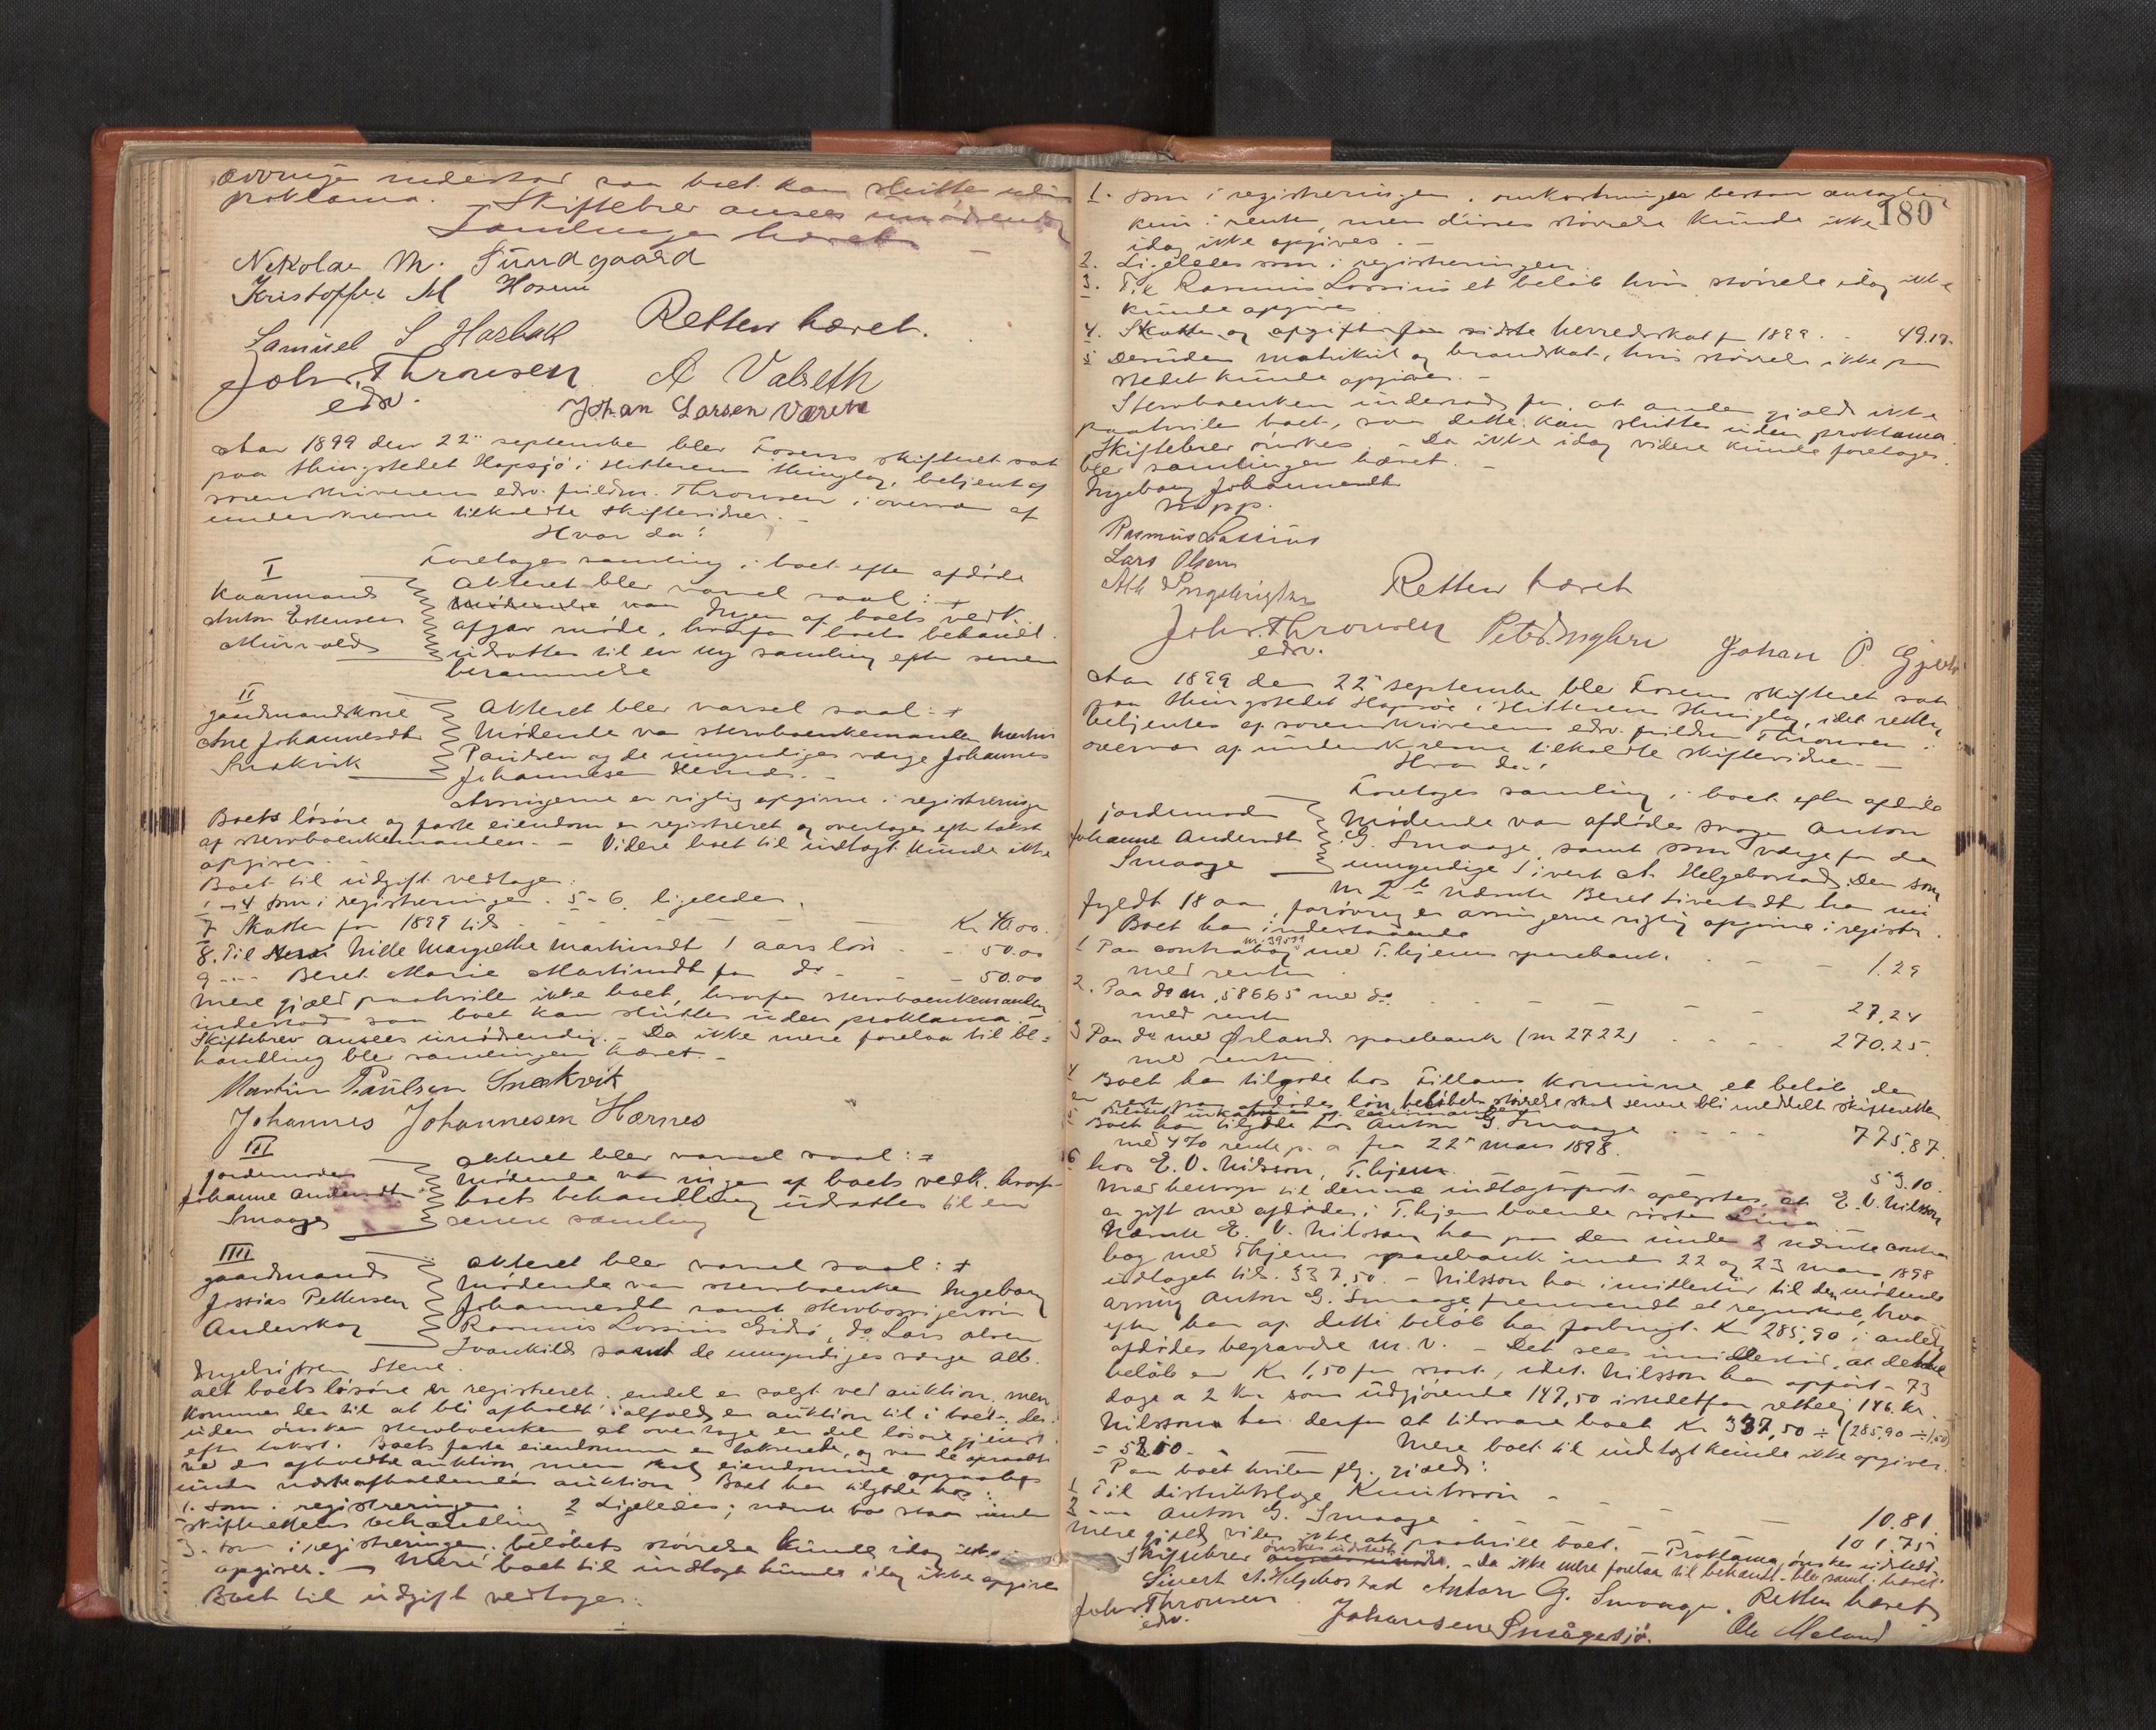 øvrige indestod saa boet kan sluttes uden
proklama. - Skiftebrev ansees unødvendig
Samlingen hævet. -
Nikolai M. Sundgaard
Kristoffer M Hosen
Samuel S Hasbak Retten hævet.
Johs. Thronsen A Valseth
edsv. Johan Larsen Værem
Aar 1899 den 22de september blev Fosens skifteret sat
paa thingstedet Hopsjø i Hitterens thinglag, betjent af
sorenskriverens edsv. fuldm. Thronsen i overvær af
underskrevne tilkaldte skiftevidner. -
Hvor da:
Foretoges samling i boet efter afdøde
I
kaarmand Akteret blev varsel saal: +
Anton Estensen Mødende var Ingen af boets vedk.
Murvold afgav møde, hvorfor boets behandl.
udsattes til en ny samling efter senere
berammelse
II
gaardmandskone Akteret blev varsel saal: +
Ane Johannesdt Mødende var stervboenkemanden Martin
Snekvik Paulsen og de umyndiges værge Johannes
Johannesen Hernes. -
Arvingerne er rigtig opgivne i registreringen
Boets løsøre og faste eiendom er registreret og overtages efter takst
af stervboenkemanden. - Videre boet til indtægt kunde ikke
opgives. -
Boet til udgift vedtoges:
1-4 som i registreringen. 5-6 ligeledes.
7 Skatter for 1899 tils. - - - - Kr 40.00.
8. Til Nille Margrethe Martinsdt 1 aars løn - 50.00
9 --- Beret Marie Martinsdt for do - - - 50.00
Mere gjæld paahviler ikke boet, hvorfor stervboenkemanden
indestod saa boet kan sluttes uden proklama. -
Skiftebrev ansees unødvendig. - Da ikke mere forelaa til be-
handling blev samlingen hævet. -
Martin Paulsen Snekvik
Johannes Johannesen Hærnes
III
jordemoder Akteret blev varsel saal: +
Johanne Andersdt Mødende var ingen af boets vedk. hvorfor
Smaage boets behandling udsattes til en
senere samling
IIII
gaardmand Akteret blev varsel saal: +
Jossias Pettersen Mødende var stervboenken Ingeborg
Anderskog Johannesdt samt stervbossvigersøn
Rasmus Lossius Gidsø, do Lars Olsen
Svankild samt de umyndiges værge Alb.
Ingebrigtsen Stene.
Alt boets løsøre er registreret. endel er solgt ved auktion, men
kommer der til at bli afholdt ialfald en auktion til i boet. des-
uden ønsker stervboenken at overtage en del løsøre gjenst.
efter takst. Boets faste eiendomme er takserede, og var de opraabt
ved den afholdte auktion, men skal eiendomme opraabes
under næste afholdendes auktion. Boet har tilgode hos:
1. som i registreringen. 2 Ligeledes; nævnte bo staar under
skifterettens behandling
3. som i registreringen. beløbets størrelse kunde idag ikke
opgives. - Mere boet til indtægt kunde idag ikke opgives
Boet til udgift vedtoges:

180
1. som i registreringen. omkostninger bestaar antagelig
kun i rente, men dennes størrelse kunde ikke
idag ikke opgives. -
2. Ligeledes som i registreringen.
3. Til Rasmus Lossius et beløb hvis størrelse idag ikke
kunde opgives
4. Skatter og afgifter for sidste herredsskat for 1899. - 49.17.
5 Desuden matrikul og brandskat, hvis størrelse ikke paa
stedet kunde opgives. -
Stervboenken indestod for, at anden gjæld ikke
paahviler boet, saa dette kan sluttes uden proklama.
Skiftebrev ønskes. - Da ikke idag videre kunde foretages
blev samlingen hævet. -
Ingeborg Johannesdt
m p p.
Rasmus Lassius
Lars Olsen
Alb Ingebrigtsen Retten hævet
Johs. Thronsen Johan P. Gjels
edsv.
Aar 1899 den 22de september blev Fosens skifteret sat
paa thingstedet Hopsjøe i Hitterens thinglag, idet retten
betjentes af sorenskriverens edsv. fuldm Thronsen i
overvær af underskrevne tilkaldte skiftevidner. -
Hvor da:
Foretoges samling i boet efter afdøde
jordemoder Mødende var afdødes svoger Anton
Johanne Andersdt G. Smaage, samt som værge for de
Smaage umyndige Sivert A. Helgebostad. Den som
nr 2 b nævnte Beret Sivertsdt har nu
fyldt 18 aar, forøvrig er arvingerne rigtig opgivne i registr.
Boet har indestaaende
1 Paa contrabog nr 39599 med T.hjems sparebank.
med renter. - - - 1.29
2. Paa do nr. 58665 med do.
med renter - - - 27.24
3 Paa do med Ørlands sparebank (nr 2722) - - - 270.25.
med renter.
4 Boet har tilgode hos Fillans kommune et beløb, der
er rest paa afdødes løn, beløbets størrelse skal senere bli meddelt skifteretten
5 Boet har tilgode hos Anton G. Smaage - - - 775.87.
med 4% rente p. a fra 22de mars 1898.
6 hos E. V. Nilsson, T.hjem. 53.10.
Med hensyn til denne indtægtspost oplystes, at E. V. Nilsson
er gift med afdødes i T.hjem boende søster
Nævnte E. V. Nilsson har paa den under 2 nævnte contra
bog med Thjems sparebank under 22 og 23 mars 1898
udtaget tils. 337.50. - Nilsson har imidlertid til den mødende
arving Anton G. Smaage fremsendt et regnskab, hvor
efter han af dette beløb har forbrugt Kr 285,90 i anledn.
afdødes begravelse m. v. - Det sees imidlertid, at dette
beløb er Kr 1,50 for stort, idet Nilsson har opført - 73
dage a 2 Kr som udgjørende 147,50 istedetfor rettelig 146. Kr.
Nilsson har derfor at tilsvare boet Kr 337,50 ÷ (285,90 ÷ 1,50)
= Mere boet til indtægt kunde ikke opgives.
Paa boet hviler flg. gjæld:
1 Til distriktslæge Knutsson - - - 10.81.
2 --- Anton G. Smaage - - - 101.75
Mere gjæld vides ikke at paahvile boet. - Proklama ønskes udstedt.
Skiftebrev ønskes udstedt. - Da ikke mere forelaa til behandl. blev saml. hævet.
Sivert A. Helgebostad Anton G. Smaage. Retten hævet
Johs Thronsen
edsv. Johansen Smågesjø. Ole Meland